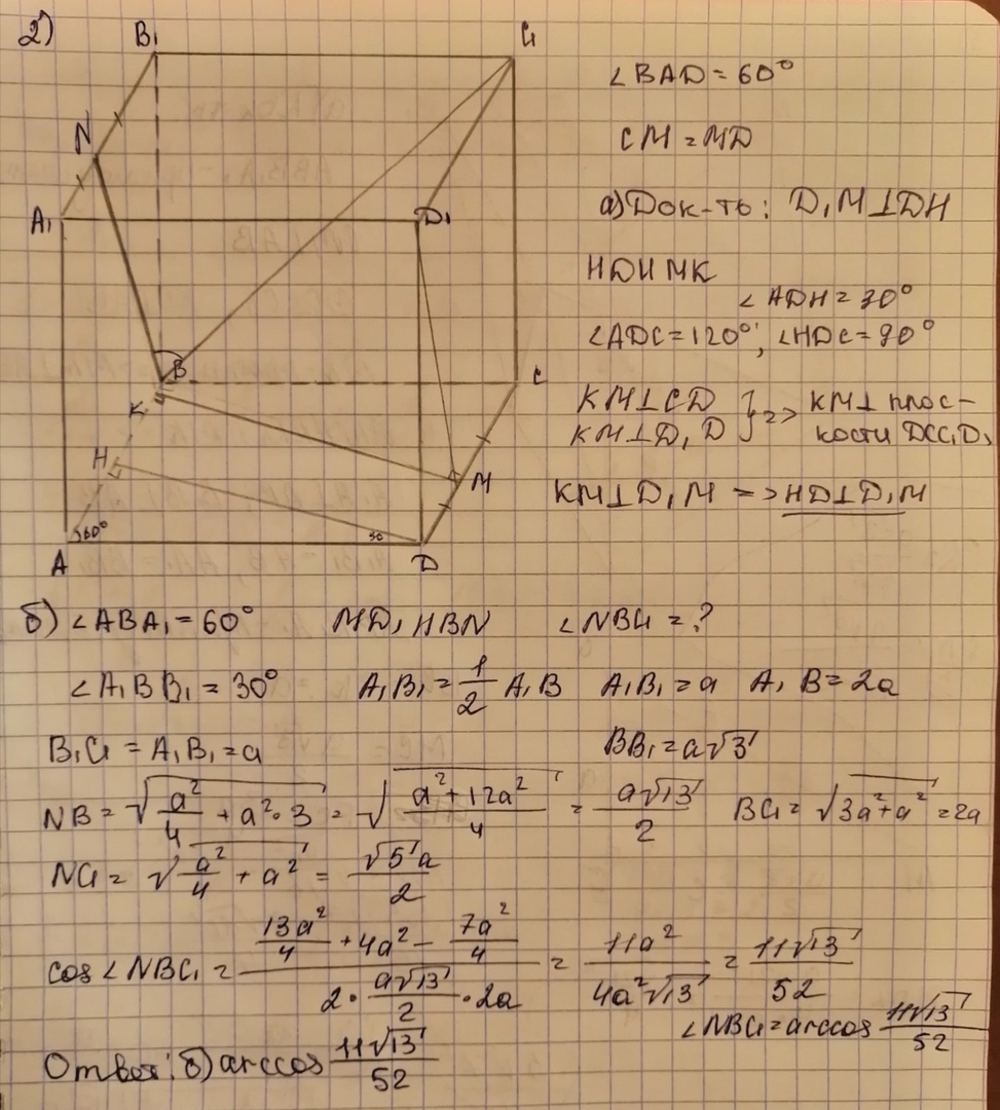 2)
B₁
C₁
∠BAD = 60°
N
CM = MD
A₁
D₁
а) Док-ть: D₁M ⊥ DH
HD ∥ MK
∠ADH = 30°
∠ADC = 120°; ∠HDC = 90°
B
C
K
KM ⊥ CD } => KM ⊥ плос-
KM ⊥ D₁D } кости DCC₁D₁
H
M
KM ⊥ D₁M => HD ⊥ D₁M
60°
30
A
D
б) ∠ABA₁ = 60° MD₁ ∥ BN ∠NBC₁ = ?
∠A₁BB₁ = 30° A₁B₁ = 1/2 A₁B A₁B₁ = a A₁B = 2a
B₁C₁ = A₁B₁ = a BB₁ = a√3
NB = √(a²/4 + a²·3) = √((a² + 12a²)/4) = a√13/2 BC₁ = √(3a² + a²) = 2a
NC₁ = √(a²/4 + a²) = √5a/2
cos∠NBC₁ = (13a²/4 + 4a² − 7a²/4)/(2 · a√13/2 · 2a) = 11a²/(4a²√13) = 11√13/52
∠NBC₁ = arccos 11√13/52
Ответ: б) arccos 11√13/52